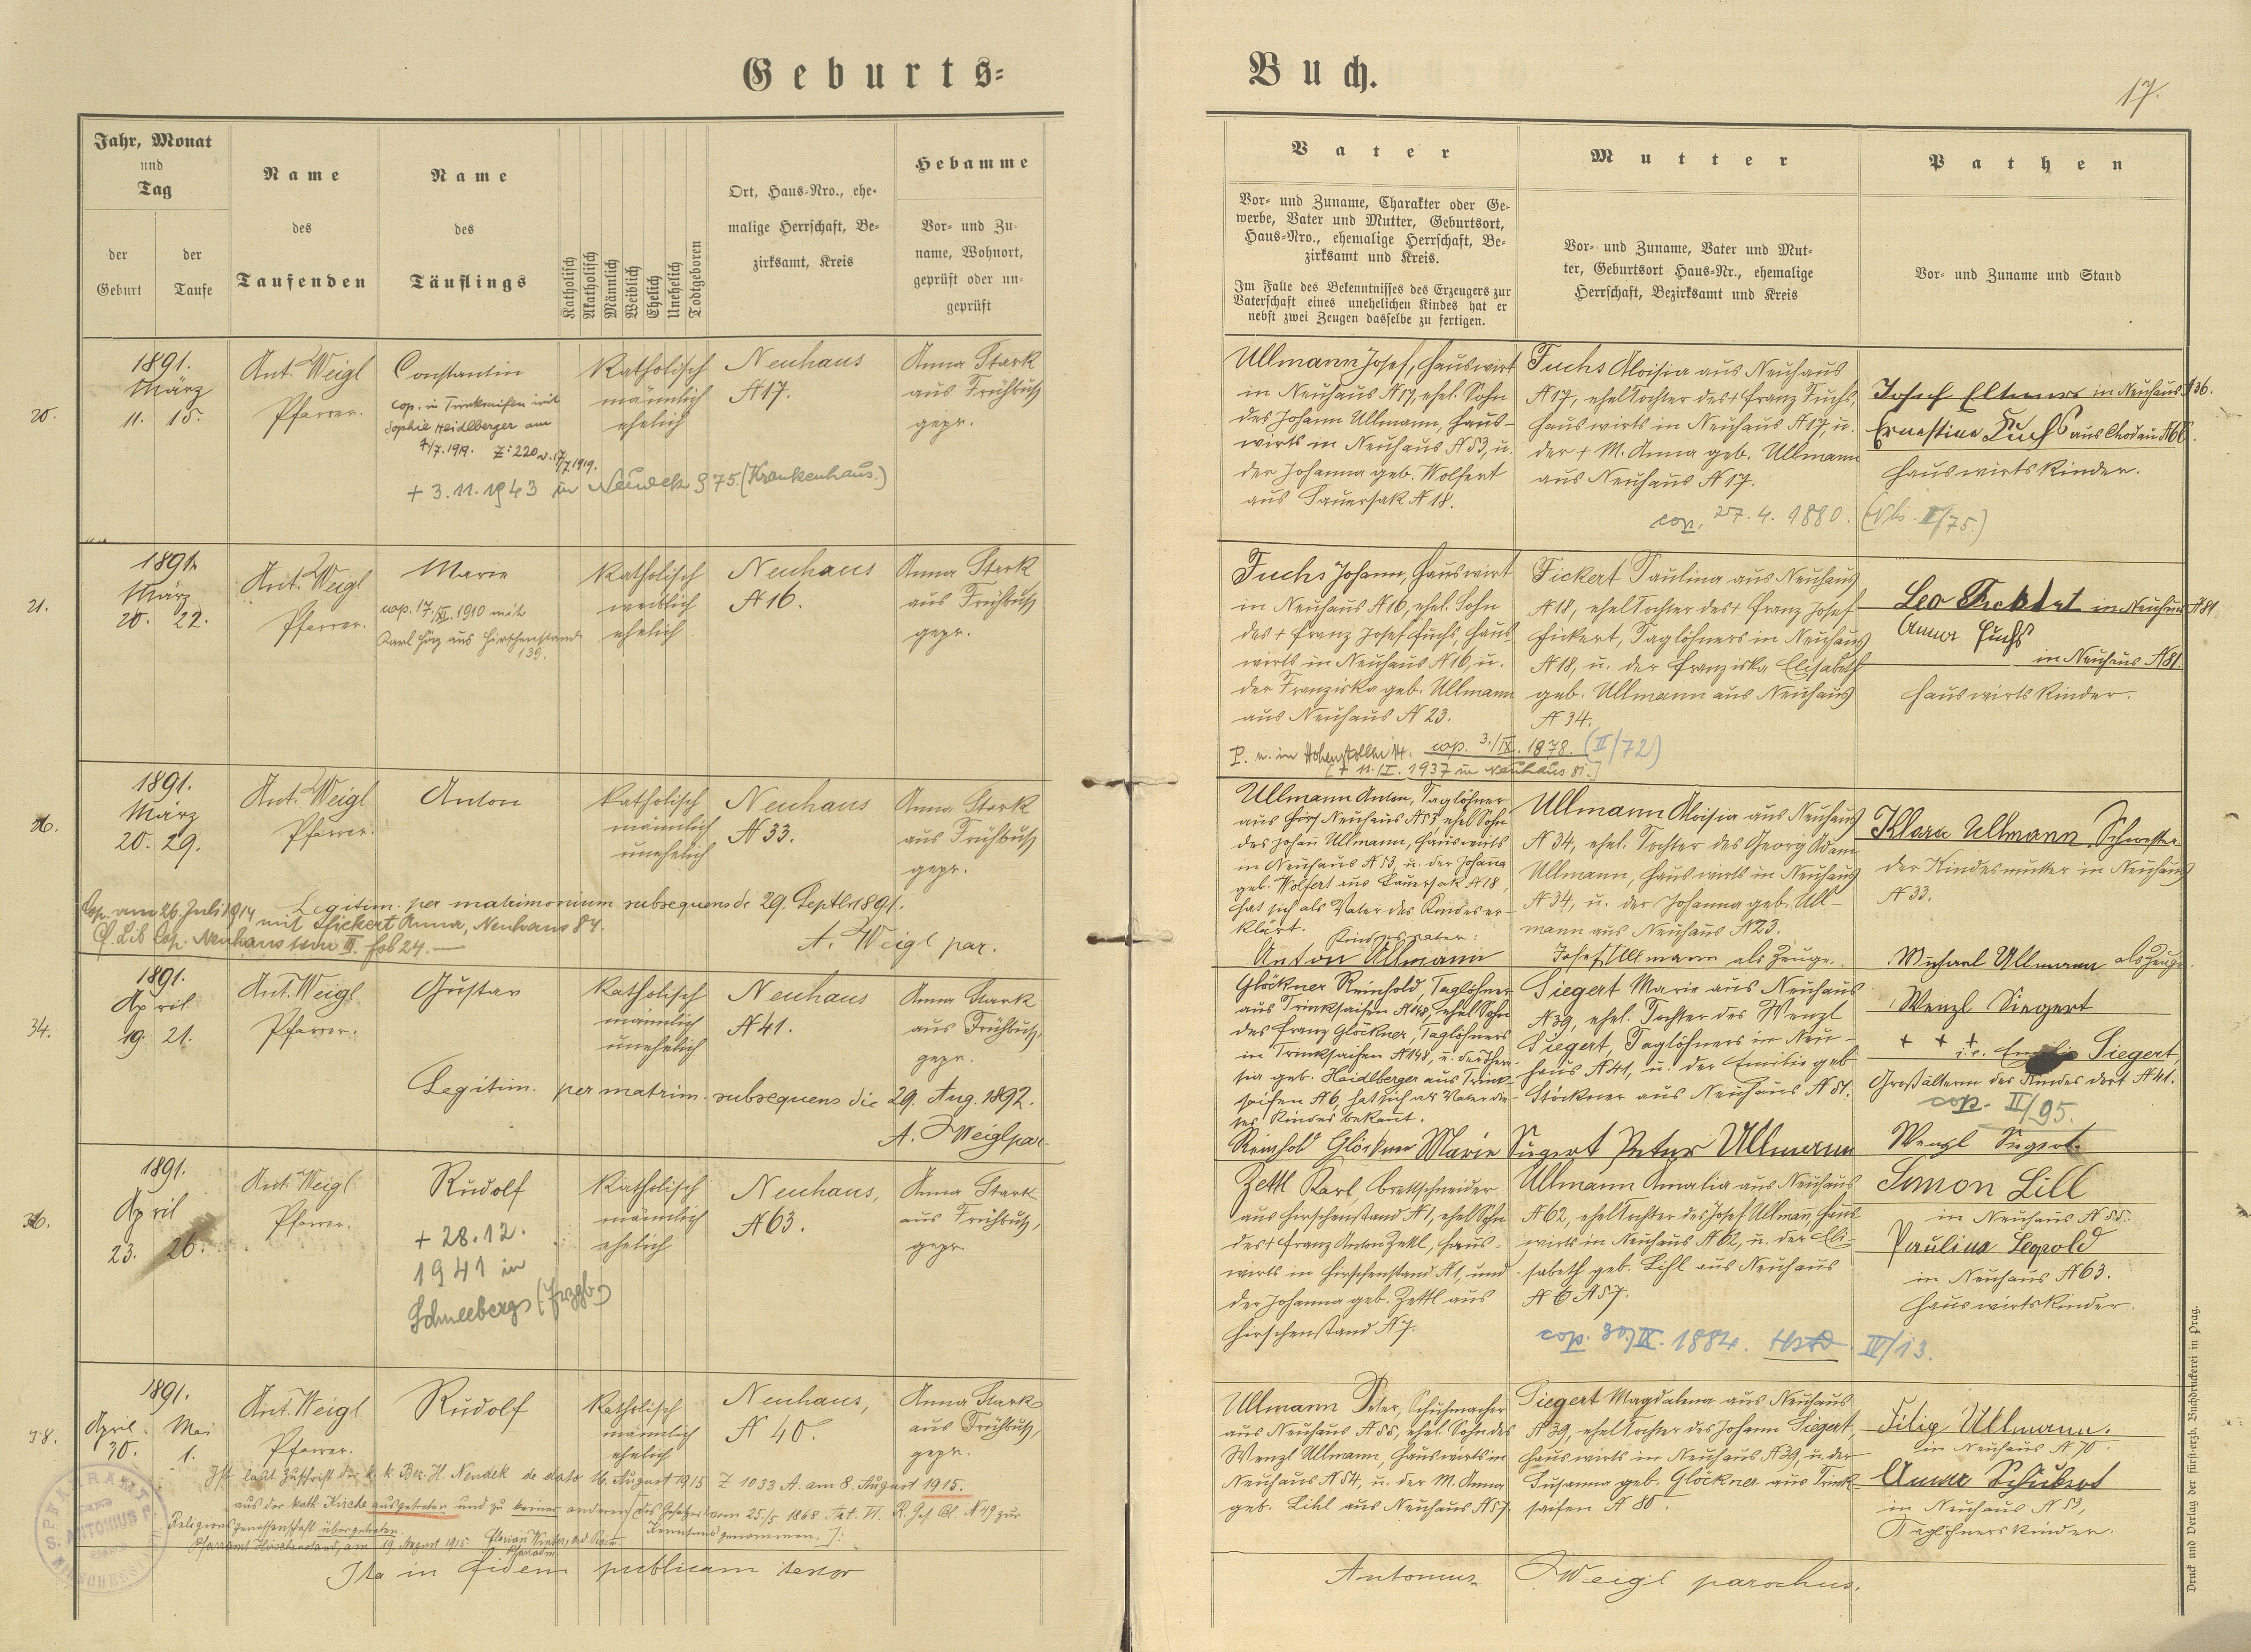 Geburts=
Buch.
17.
Jahr, Monat
und
Tag
der
Geburt
der
Taufe
Name
des
Taufenden
Name
des
Täuflings
Katholisch
Akatholisch
Männlich
Weiblich
Ehelich
Unehelich
Todtgeboren
Ort, Haus-Nro., ehe-
malige Herrschaft, Be-
zirksamt, Kreis
Hebamme
Vor- und Zu-
name, Wohnort,
geprüft oder un-
geprüft
Vater
Vor- und Zuname, Charakter oder Ge-
werbe, Vater und Mutter, Geburtsort,
Haus-Nro., ehemalige Herrschaft, Be-
zirksamt und Kreis.
Im Falle des Bekenntnisses des Erzeugers zur
Vaterschaft eines unehelichen Kindes hat er
nebst zwei Zeugen dasselbe zu fertigen.
Mutter
Vor- und Zuname, Vater und Mut-
ter, Geburtsort Haus-Nr., ehemalige
Herrschaft, Bezirksamt und Kreis
Pathen
Vor- und Zuname und Stand
20.
1891.
März
11. 15.
Ant. Weigl
Pfarrer.
Constantin
cop. in Trinksaifen mit
Sophie Heidlberger am
4/7.1919. Z: 220 v. 17/7 1919.
+ 3.11.1943 in Neudek 975. (Krankenhaus.)
Katholisch
männlich
ehelich
Neuhaus
N 17.
Anna Stark
aus Frühbuß
gepr.
Ullmann Josef, Hauswirt
in Neuhaus N 17, ehel. Sohn
des Johann Ullmann, Haus-
wirts in Neuhaus N 53, u.
der Johanna geb. Wolfert
aus Sauersak N 18.
Fuchs Aloisia aus Neuhaus
N 17, ehel Tochter des + Franz Fuchs,
Hauswirts in Neuhaus N 17, u.
der + M. Anna geb. Ullmann
aus Neuhaus N 17.
cop. 27. 4. 1880. II/75.)
Josef in Neuhaus N 36.
Ernestine Fuchs aus Chodau N 66.
Hauswirtskinder.
21.
1891.
März
20. 22.
Ant. Weigl
Pfarrer.
Marie
cop. 17./XI. 1910 mit
Karl aus Hirschenstand
139.
Katholisch
weiblich
ehelich
Neuhaus
N 16.
Anna Stark
aus Frühbuß
gepr.
Fuchs Johann, Hauswirt
in Neuhaus N 16, ehel. Sohn
des + Franz Josef Fuchs, Haus-
wirts in Neuhaus N 16, u.
der Franziska geb. Ullmann
aus Neuhaus N 23.
Fickert Paulina aus Neuhaus
N 18, ehel Tochter des + Franz Josef
Fickert, Taglöhners in Neuhaus
N 18, u. der Franziska Elisabeth
geb. Ullmann aus Neuhaus
N 34.
cop. 3./IX. 1878. (II/72)
+ 11./I. 1937 in Neuhaus 81.
Leo in Neuhaus N 81.
Anna Fuchs
in Neuhaus N 81.
Hauswirtskinder.
1891.
März
20. 29.
Ant. Weigl
Pfarrer.
Anton
Katholisch
männlich
unehelich
Neuhaus
N 33.
Anna Stark
aus Frühbuß
gepr.
Legitim. per matrimonium subsequens dº 29. Septbr 1891.
A. Weigl par.
Cop. am 26. Juli 1914 mit Fickert Anna, Neuhaus 84.
Cf. Lib Cop. Neuhaus tom III. fol 24.—
Ullmann Anton, Taglöhner
aus Neuhaus N 53, ehel Sohn
des Johann Ullmann, Hauswirts
in Neuhaus N 53, u. der Johanna
geb. Wolfert aus Sauersak N 18,
hat sich als Vater des Kindes er-
klärt.
Kindesvater:
Anton Ullmann
Ullmann Aloisia aus Neuhaus
N 34, ehel. Tochter des Georg Adam
Ullmann, Hauswirts in Neuhaus
N 34, u. der Johanna geb. Ull-
mann aus Neuhaus N 23.
Josef Ullmann als Zeuge.
Klara Ullmann, Schwester
der Kindesmutter in Neuhaus
N 33.
Michael Ullmann als Zeuge.
34.
1891.
April
19. 21.
Ant. Weigl
Pfarrer.
Gustav
Katholisch
männlich
unehelich
Neuhaus
N 41.
Anna Stark
aus Frühbuß,
gepr.
Legitim. per matrim. subsequens die 29. Aug. 1892.
A. Weigl par.
Glöckner Reinhold, Taglöhner
aus Trinksaifen N 148, ehel Sohn
des Franz Glöckner, Taglöhners
in Trinksaifen N 148, u. der There-
sia geb. Heidlberger aus Trink-
saifen N 6, hat sich als Vater die-
ses Kindes bekannt.
Reinhold Glöckner
Siegert Marie aus Neuhaus
N 39, ehel. Tochter des Wenzl
Siegert, Taglöhners in Neu-
haus N 41, u. der Emilie geb
Glöckner aus Neuhaus N 51.
Marie Siegert Peter Ullmann
Wenzl Siegert
+ + +
Siegert,
Großältern des Kindes dort N 41.
cop. II/95.
Wenzl Siegert
36.
1891.
April
23. 26.
Ant. Weigl
Pfarrer.
Rudolf
+ 28.12.
1941 in
Schneeberg (Erzgb.)
Katholisch
männlich
ehelich
Neuhaus,
N 63.
Anna Stark
aus Frühbuß,
gepr.
Zettl Karl, Brettschneider
aus Hirschenstand N 1, ehel Sohn
des + Franz Anton Zettl, Haus-
wirts in Hirschenstand N 1, und
der Johanna geb. Zettl aus
Hirschenstand N 7.
Ullmann Amalia aus Neuhaus
N 62, ehel Tochter des Josef Ullmann, Haus-
wirts in Neuhaus N 62, u. der Eli-
sabeth geb. Lihl aus Neuhaus
N 57.
cop. 30./IX. 1884. IV/13.
Simon Lill
in Neuhaus N 55.
Paulina Leopold
in Neuhaus N 63.
Hauswirtskinder.
38.
1891.
April Mai
30. 1.
Ant. Weigl
Pfarrer.
Rudolf
Katholisch
männlich
ehelich
Neuhaus,
N 40.
Anna Stark
aus Frühbuß,
gepr.
Ist laut Zuschrift der k. k. Bez. H. Neudek de dato 16. August 1915 Z 1033 A. am 8. August 1915.
aus der kath Kirche ausgetreten und zu keiner anderen (des Gesetzes vom 25./5. 1868 Art. VI. R. Ges. Bl. N 49 zur
Religionsgenossenschaft übergetreten. Kenntnis genommen.
Pfarramt Hirschenstand, am 19. August 1915. Florian Winter,
Ullmann Peter, Schuhmacher
aus Neuhaus N 55, ehel. Sohn des
Wenzl Ullmann, Hauswirts in
Neuhaus N 54, u. der M. Anna
geb. Lihl aus Neuhaus N 57.
Siegert Magdalena aus Neuhaus
N 39, ehel Tochter des Johann Siegert,
Hauswirts in Neuhaus N 39, u. der
Susanna geb. Glöckner aus Trink-
saifen N 80.
Filip Ullmann.
in Neuhaus N 70.
Anna Schubert
in Neuhaus N 53,
Taglöhnerskinder.
Ita in fidem publicam testor
Antonius Weigl parochus.
Druck und Verlag der fürst-erzb. Buchdruckerei in Prag.